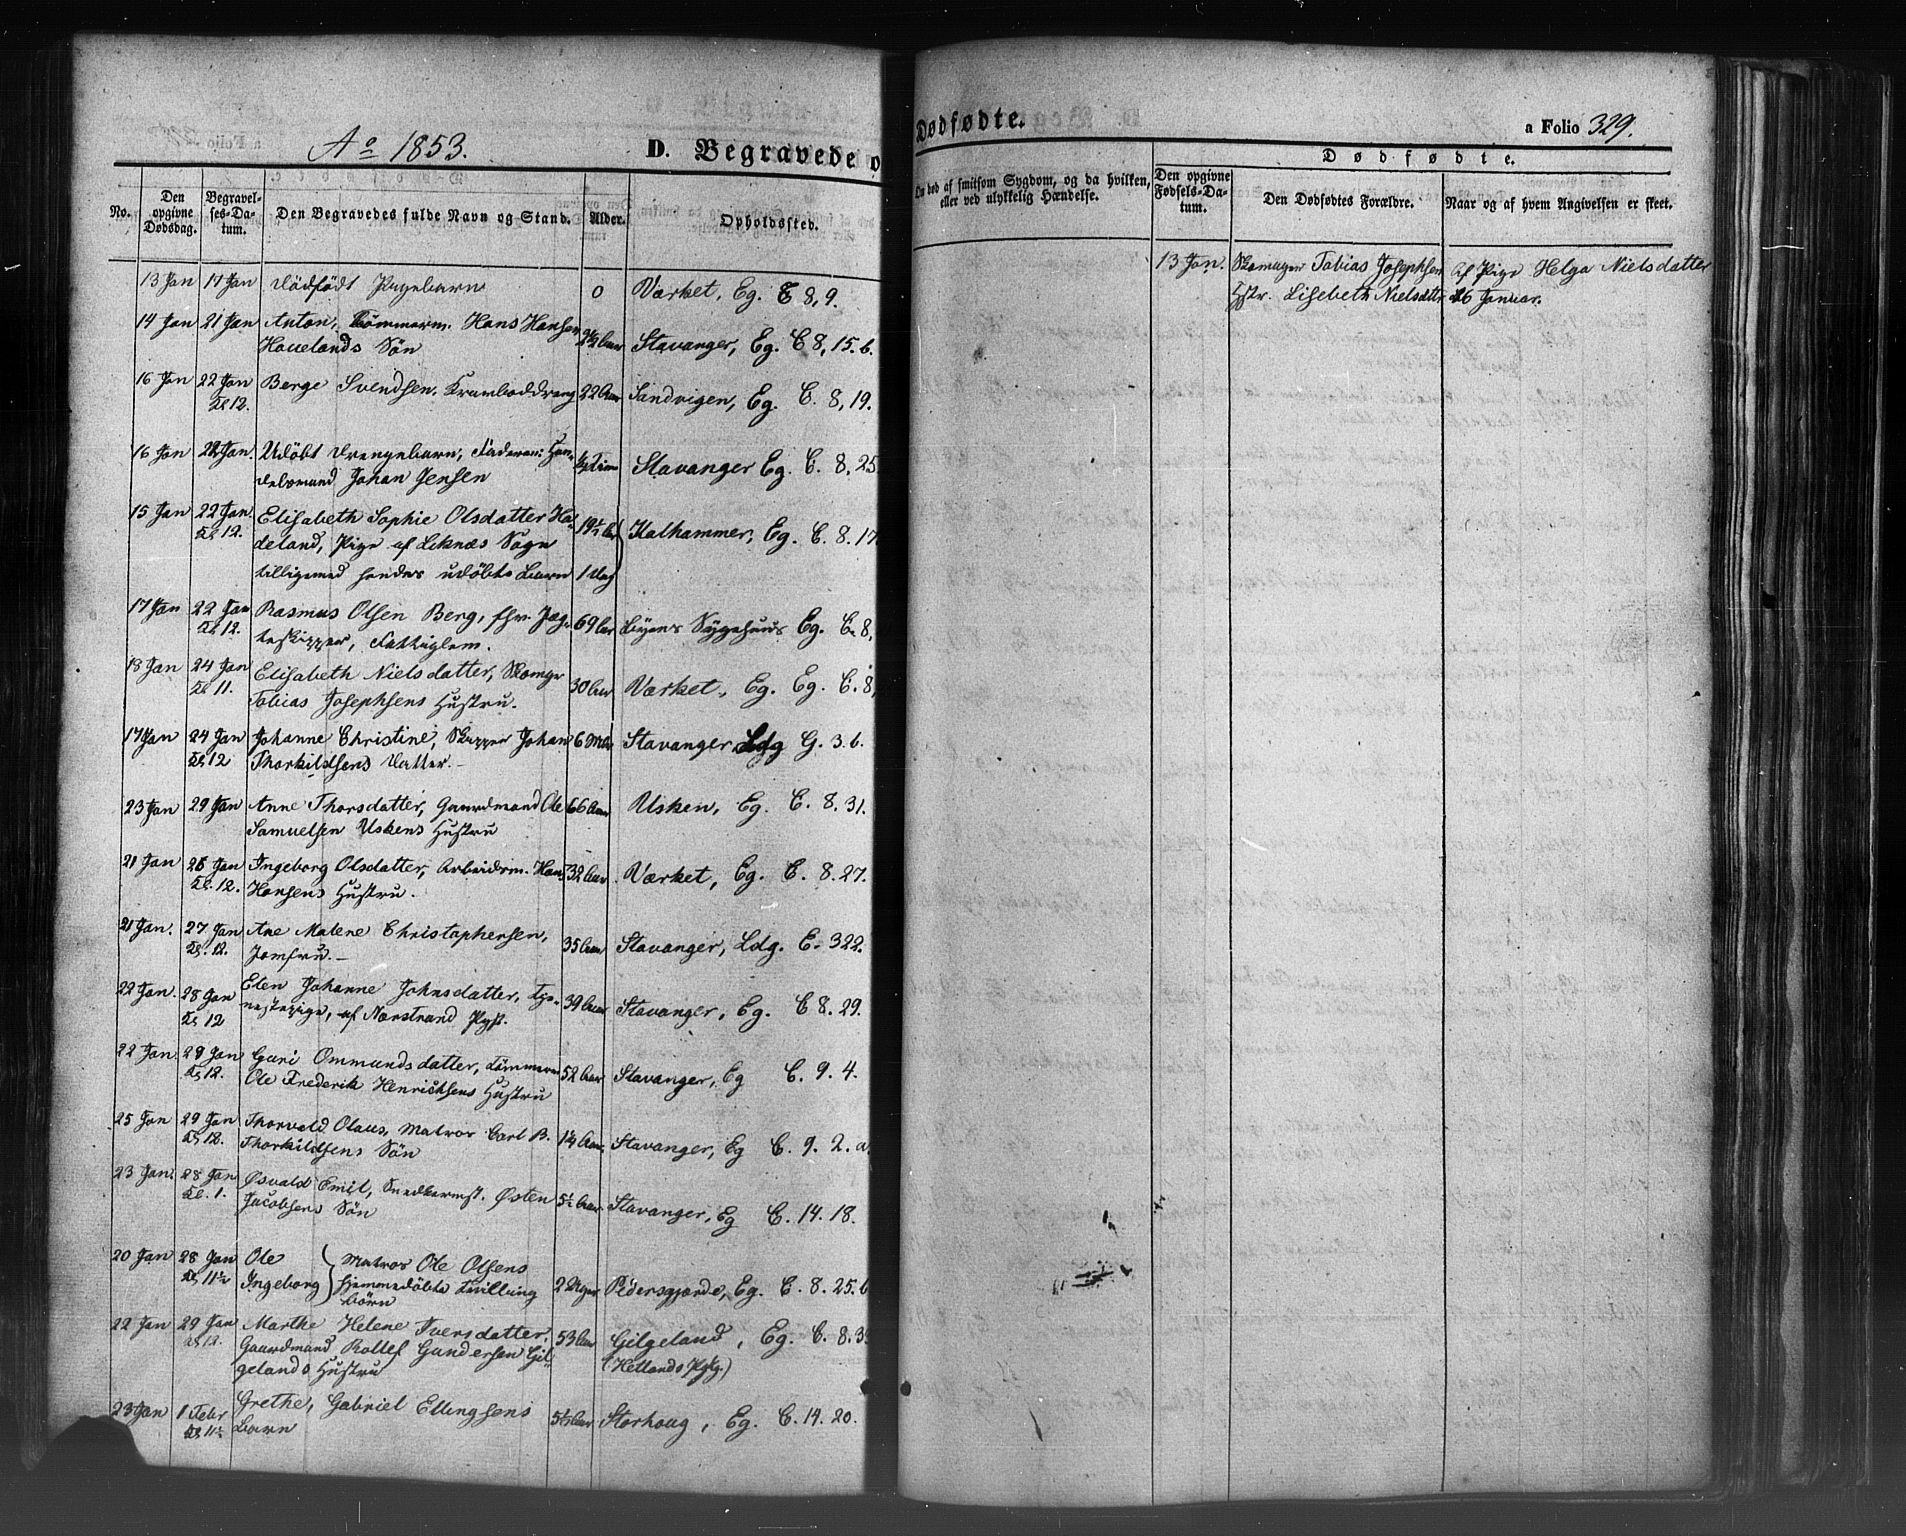 Ao 1853.
D. Begravede o
Dødfødte.
a Folio 329.
No.
Den opgivne Dødsdag.
Begravelses-Datum.
Den Begravedes fulde Navn og Stand.
Alder.
Opholdssted.
Om død af smitsom Sygdom, og da hvilken,
eller ved ulykkelig Hændelse.
Dødfødte.
Den opgivne Fødsels-Datum.
Den Dødfødtes Forældre.
Naar og af hvem Angivelsen er skeet.
13 Jan 17 Jan Dödfödt Pigebarn 0 Værket, Eg. C 8, 9.
13 Jan. Skomager Tobias Josephsen Af Pige Helga Nielsdatter
Hstr. Lisebeth Nielsdttr 16 Januar.
14 Jan 21 Jan Anton, Tömmerm. Hans Hansen
Hauelands Sön Stavanger, Eg. C 8, 15. b.
16 Jan 22 Jan Berge Svendsen, Kramboddreng 22 Aar Sandvigen, Eg. C. 8, 19.
Kl 12.
16 Jan 22 Jan. Udöbt Drengebarn, Faderen: Han-
delsmand Johan Jensen Stavanger Eg. C. 8. 25
15 Jan 22 Jan. Elisabeth Sophie Olsdatter
Kl 12. deland, Pige af Leknæs Sogn Kalhammer, Eg. C. 8. 17.
tilligemed hendes udöbte Barn 1 Dag
17 Jan 22 Jan Rasmus Olsen Berg, fhv. Jæg-
Kl 12. teskipper, Fattiglem. 69 Aar Byens Sygehuus Eg. C. 8,
18 Jan 24 Jan Elisabeth Nielsdatter, Skomgr
Kl 11. Tobias Josephsens Hustru. 30 Aar Værket, Eg. Eg. C. 8,
17 Jan 24 Jan Johanne Christine, Skipper Johan 6 Mdr Stavanger Ldg G. 3. b.
Kl 12 Thorkildsens Datter.
23 Jan 29 Jan Anne Thorsdatter, Gaardmand Ole 66 Aar Usken, Eg. C. 8. 31.
Samuelsen Uskens Hustru
21 Jan 26 Jan Ingeborg Olsdatter, Arbeidsm. Hans 32 Aar Værket, Eg. C. 8. 27.
Kl. 12. Hansens Hustru.
21 Jan. 27 Jan Ane Malene Christophersen,
Kl. 12. Jomfru. 35 Aar Stavanger, Ldg. C. 322.
22 Jan. 28 Jan Elen Johanne Johnsdatter, Tje-
Kl 12 nestepige, af Nærstrand Pgst. 39 Aar Stavanger, Eg. C 8. 29.
22 Jan. 29 Jan Guri Ommundsdatter, Tömmerm
Kl 12. Ole Frederik Henrichsens Hustru 52 Aar Stavanger, Eg C. 9. 4.
25 Jan 29 Jan Thorvald Olaus, Matros Carl B.
Kl 12. Thorkildsens Sön Stavanger, Eg C. 9. 2. a.
23 Jan. 28 Jan Osvald Emil, Snedkermst. Østen
Kl. 1. Jacobsens Sön 5½ Aar Stavanger, Eg C. 14. 18.
20 Jan 28 Jan Ole Matros Ole Olsens
Kl 11½ Ingeborg hjemmedöbte Tvilling
börn 2 Uger Pedersgjerde, Eg. C. 8. 25. b
22 Jan 29 Jan Marthe Helene Iversdatter,
Kl 12. Gaardmand Rollef Gundersen Gil-
gelands Hustru 53 Aar Gilgeland, Eg. C. 8. 3
(Hetlands Pgld.)
23 Jan 1 Febr Grethe, Gabriel Ellingsens
Kl 11½ Barn Storhoug, Eg. C. 14. 20.